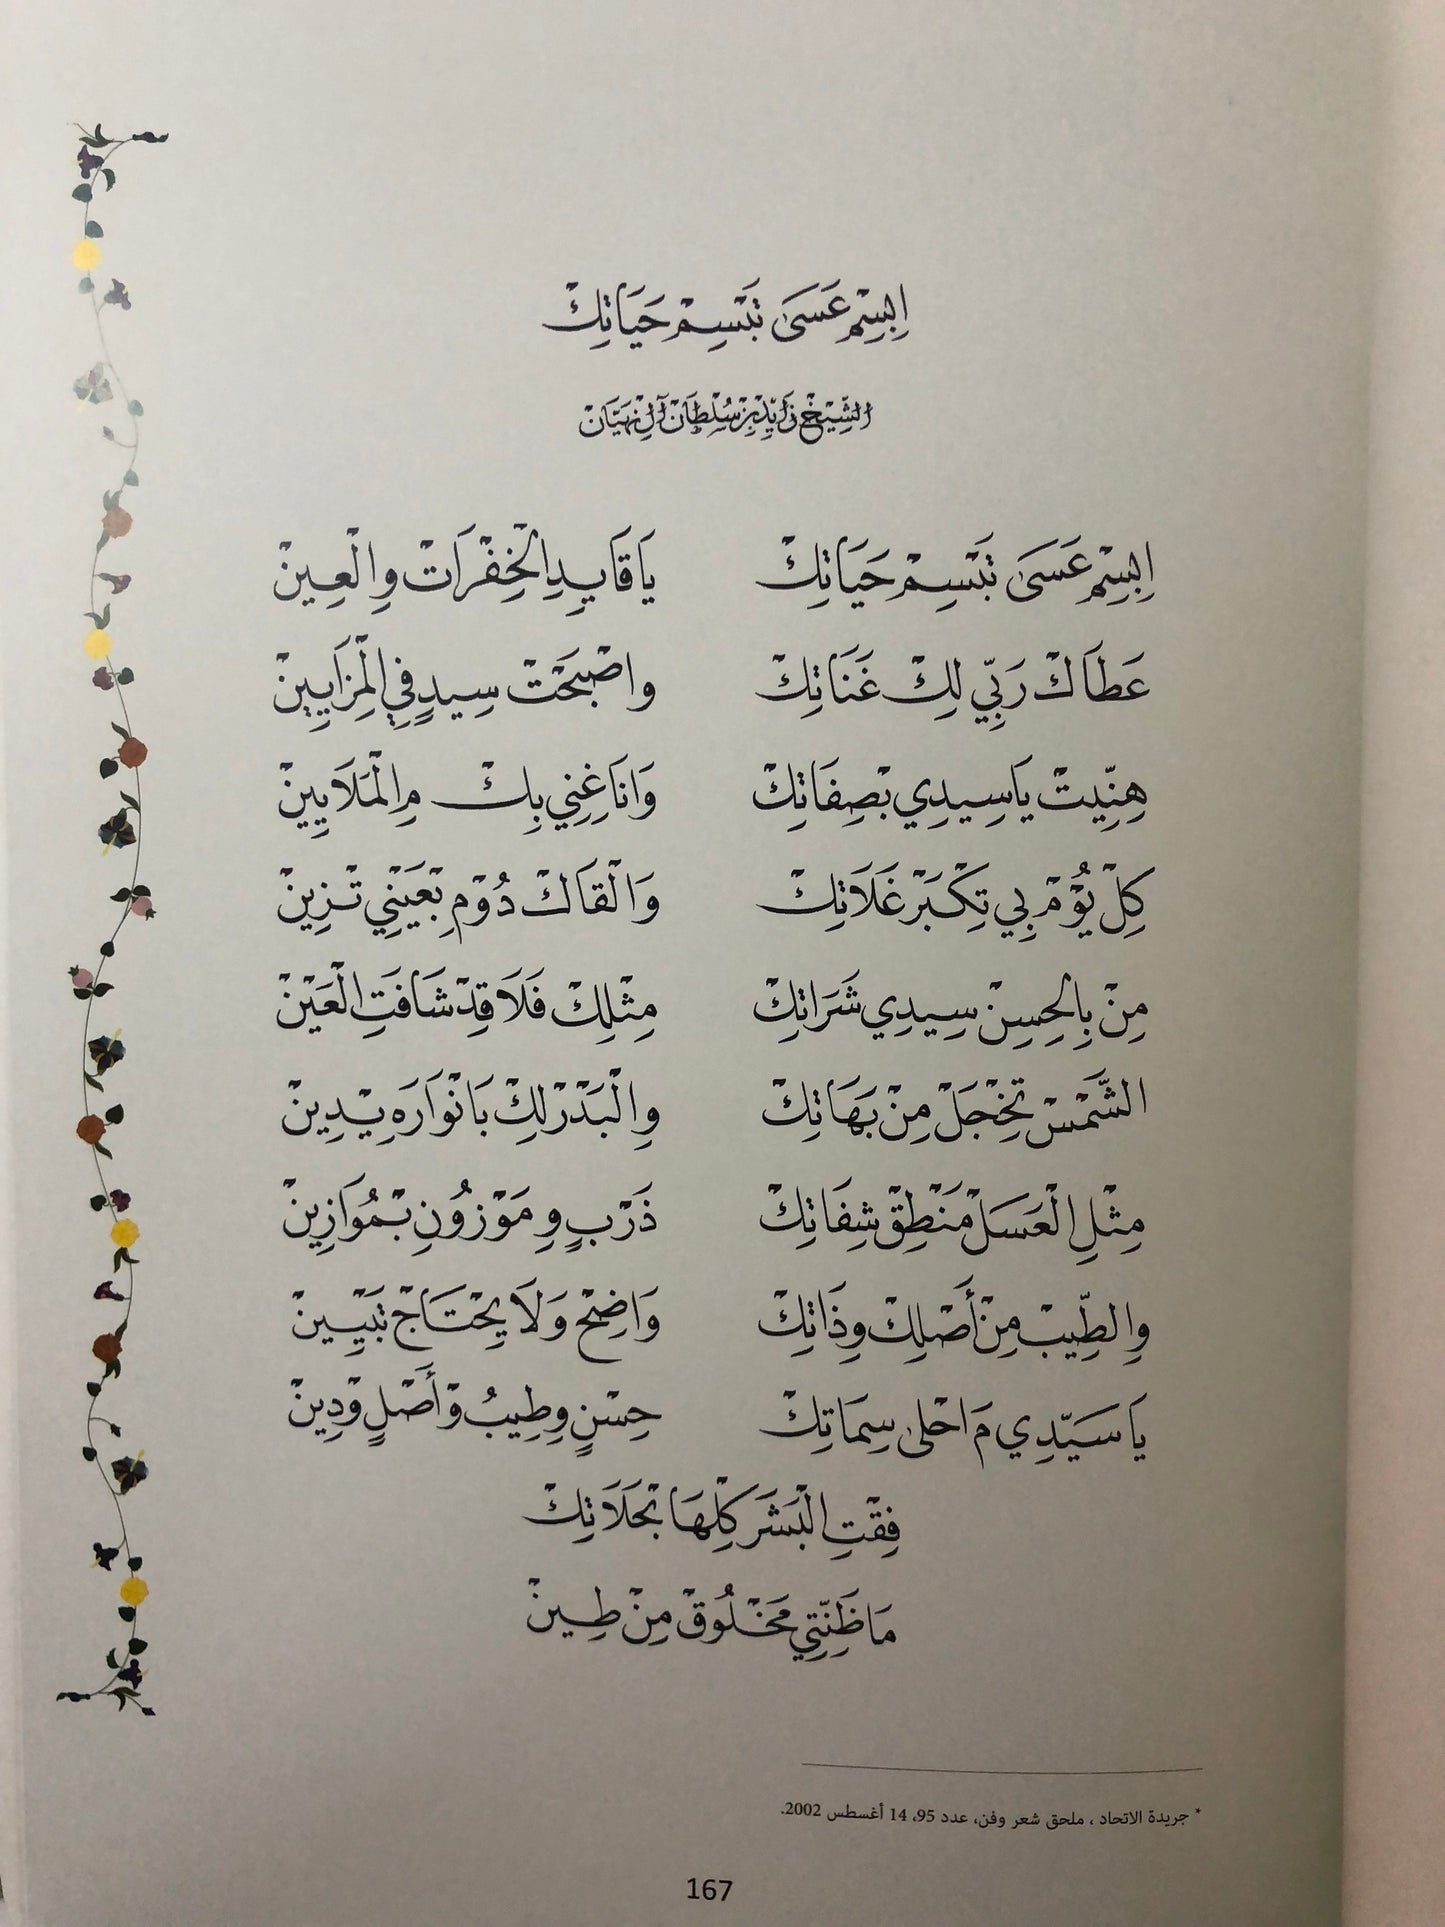 اِبْسِمْ عَسَىٰ تَبْسِمْ حَيَاتِكْ
الشِّيْخْ زَايِدْ بِنْ سُلْطَانْ آلْ نَهَيَّانْ
اِبْسِمْ عَسَىٰ تَبْسِمْ حَيَاتِكْ يَا قَايِدِ الْخِفْرَاتْ وِالْعِينْ
عَطَاكْ رَبِّي لِكْ غَنَاتِكْ واصْبَحْتْ سِيدٍ فِي الْمِزَايِينْ
هِنِّيتْ يَا سِيدِي بْصِفَاتِكْ وَانَا غِنِي بِكْ مِ الْمَلَايِينْ
كِلْ يُوْمْ بِي تِكْبَرْ غَلَاتِكْ وَالْقَاكْ دُوْمِ بْعَيْنِي تْزِينْ
مِنْ بِالْحِسِنْ سِيدِي شَرَاتِكْ مِثْلِكْ فَلَا قِدْ شَافَتِ الْعَيْنْ
الشَّمْسْ تِخْجَلْ مِنْ بَهَاتِكْ وِالْبَدْرْ لِكْ بَانْوَارَهِ يْدِينْ
مِثْلِ الْعَسَلْ مَنْطِقْ شِفَاتِكْ ذَرْبٍ وِمَوْزُونِ بْمُوَازِينْ
وِالطِّيبْ مِنْ أَصْلِكْ وِذَاتِكْ وَاضِحْ وَلَا يِحْتَاجْ تَبْيِينْ
يَا سَيِّدِي مَ احْلىٰ سِمَاتِكْ حِسْنٍ وِطِيبُ وْأَصْلٍ وْدِينْ
فِقْتِ الْبَشَرْ كِلْهَا بْحَلَاتِكْ
مَا ظَنِّتِي مَخْلُوقْ مِنْ طِينْ
* جريدة الاتحاد ، ملحق شعر وفن، عدد 95، 14 أغسطس 2002.
167